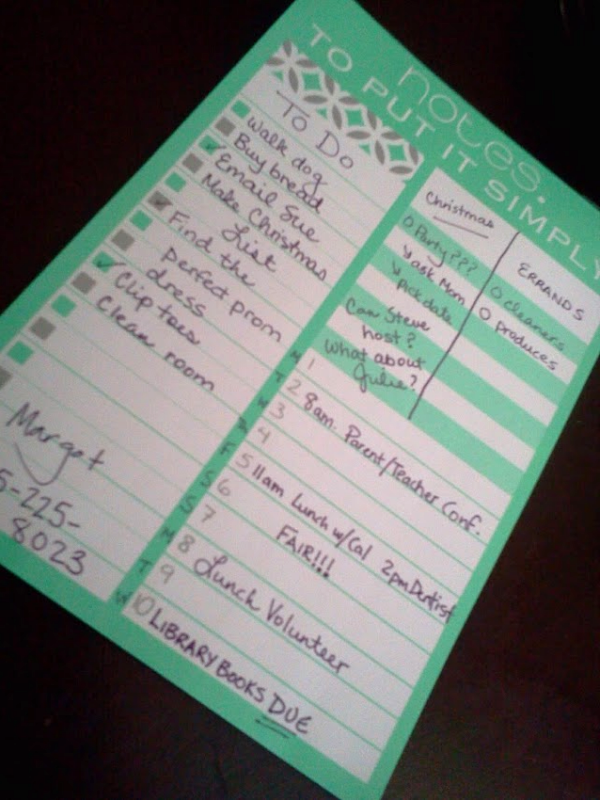 notes.
TO PUT IT SIMPLY
To Do
Walk dog
Buy bread
Email Sue
Make Christmas
List
Find the
perfect prom
dress
Clip toes
Clean room
Margot
5-225-
8023
Christmas
Party???
ask Mom
Pick date
Can Steve
host?
What about
Julie?
ERRANDS
cleaners
produces
M 1
T 2 8am. Parent/Teacher Conf.
W 3
4
F 5 11am Lunch w/Cal 2pm Dentist
S 6 FAIR!!!
S 7
M 8 Lunch Volunteer
T 9
W 10 LIBRARY BOOKS DUE